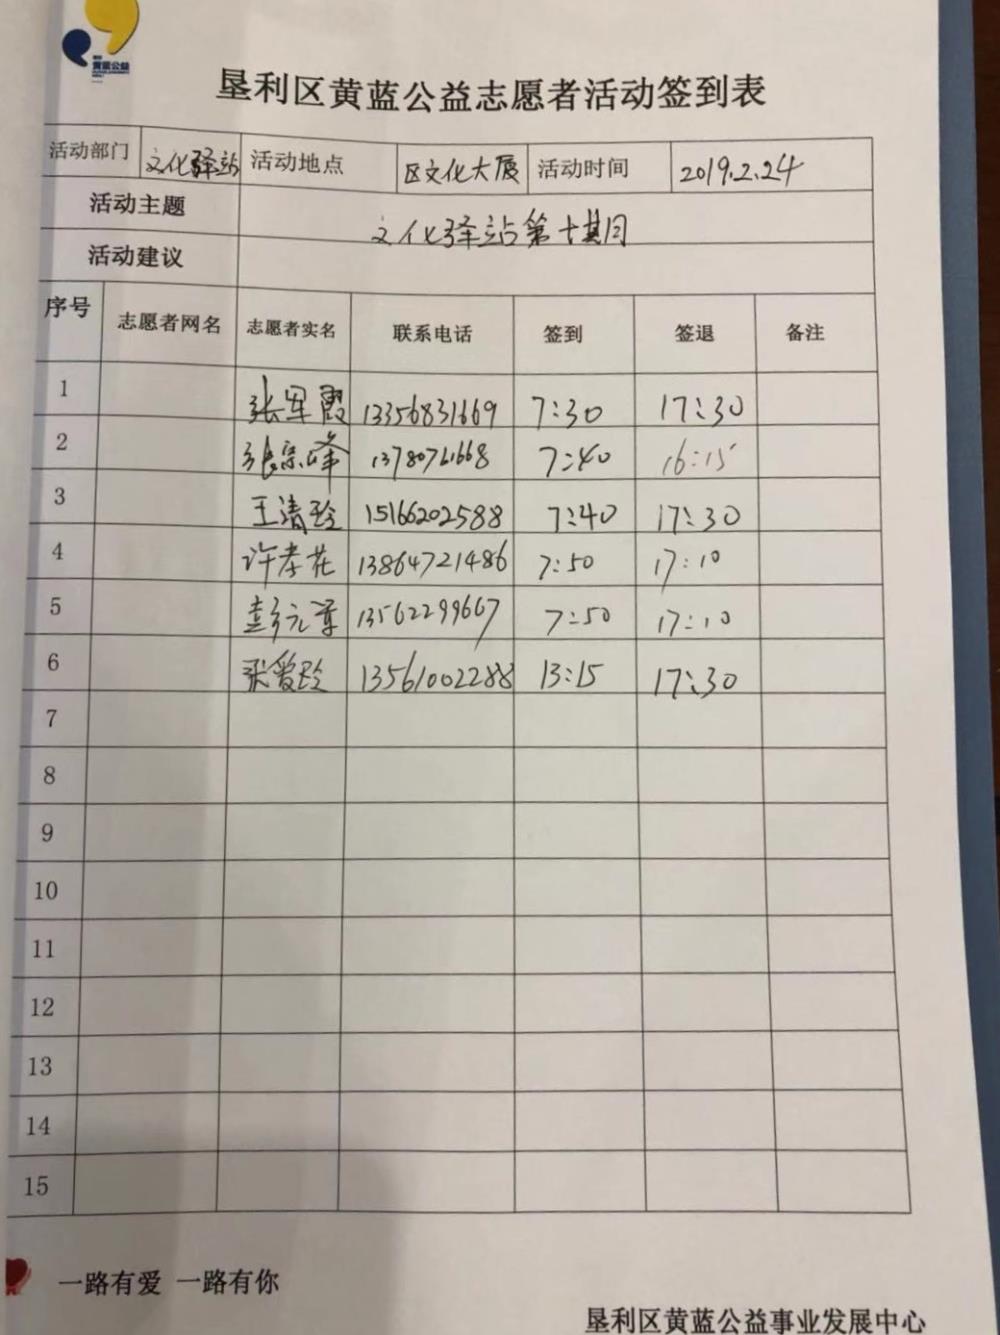 黄蓝公益
垦利区黄蓝公益志愿者活动签到表
活动部门 文化驿站 活动地点 区文化大厦 活动时间 2019.2.24
活动主题 文化驿站第十期
活动建议
序号 志愿者网名 志愿者实名 联系电话 签到 签退 备注
1 张军霞 13356831669 7:30 17:30
2 张宗峰 13780761668 7:40 16:15
3 王清玲 15166202588 7:40 17:30
4 许孝花 13864721486 7:50 17:10
5 彭元 13562299667 7:50 17:10
6 张爱玲 13561002288 13:15 17:30
7
8
9
10
11
12
13
14
15
一路有爱 一路有你
垦利区黄蓝公益事业发展中心